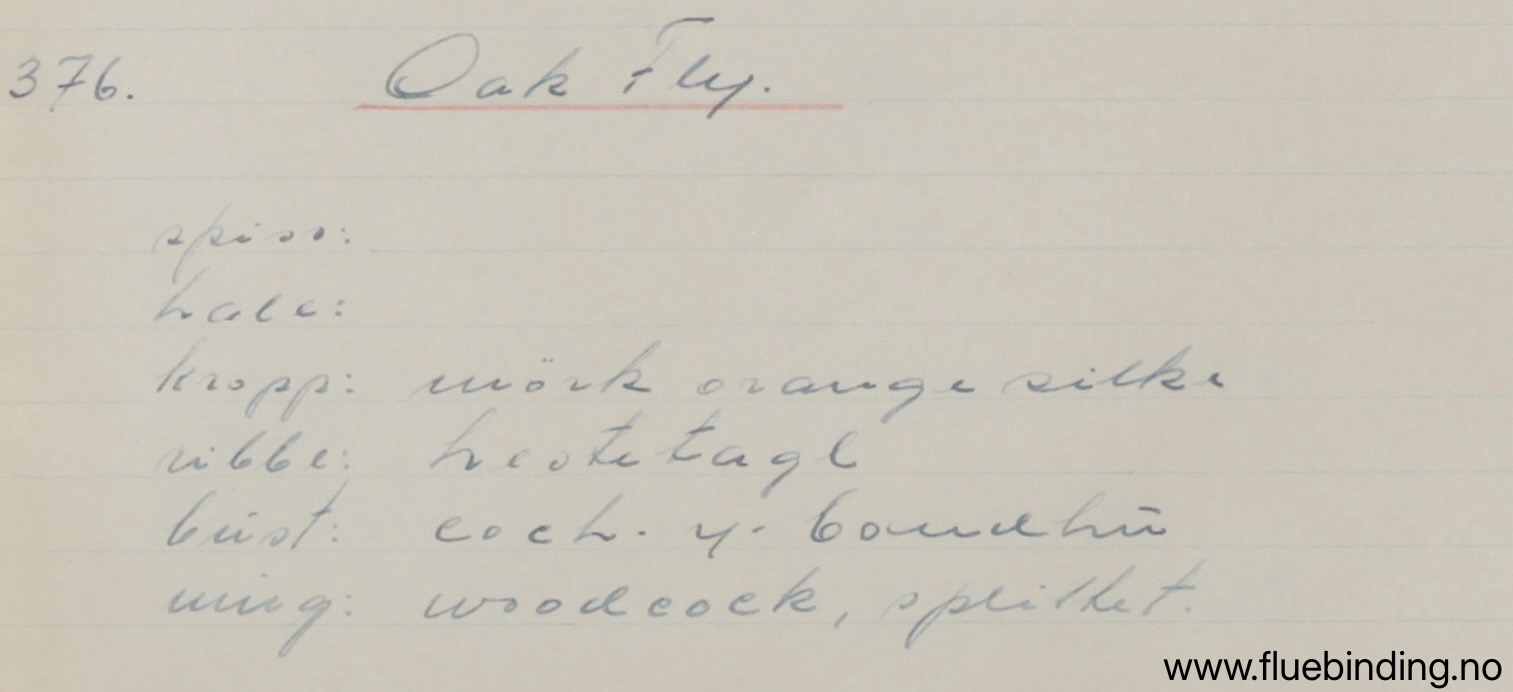 376. Oak Fly.
spiss:
hale:
kropp: mörk orange silke
ribbe: hestetagl
büst: coch. y. bondhü
wing: woodcock, splittet.
www.fluebinding.no